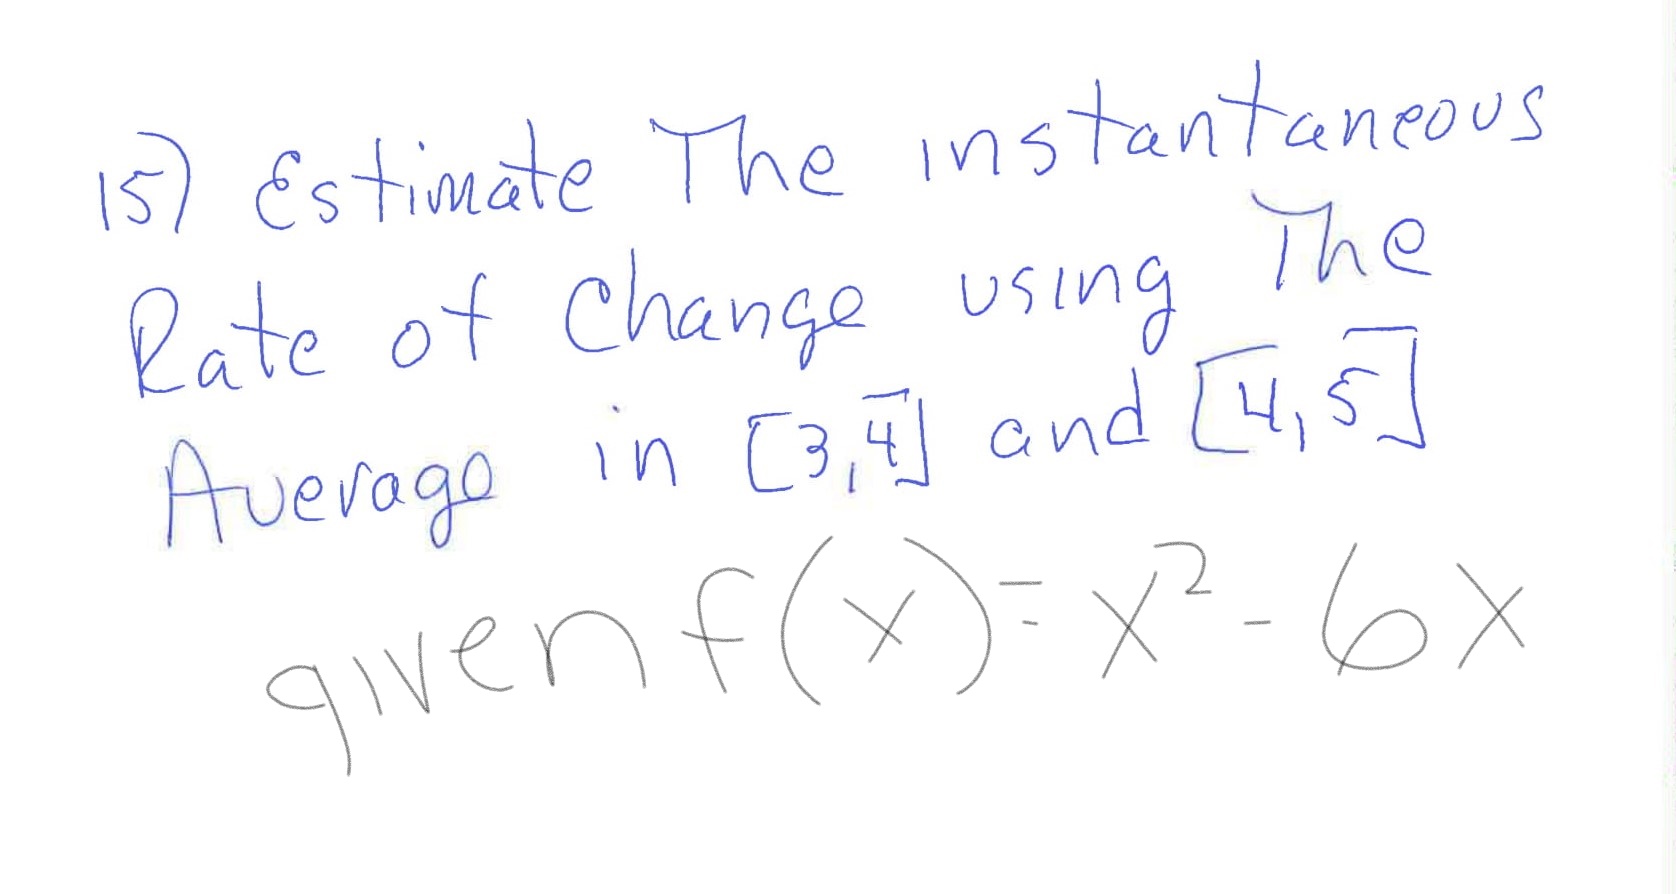 15) Estimate The instantaneous
Rate of Change using The
Average in [3,4] and [4,5]
given f(x) = x² - 6x